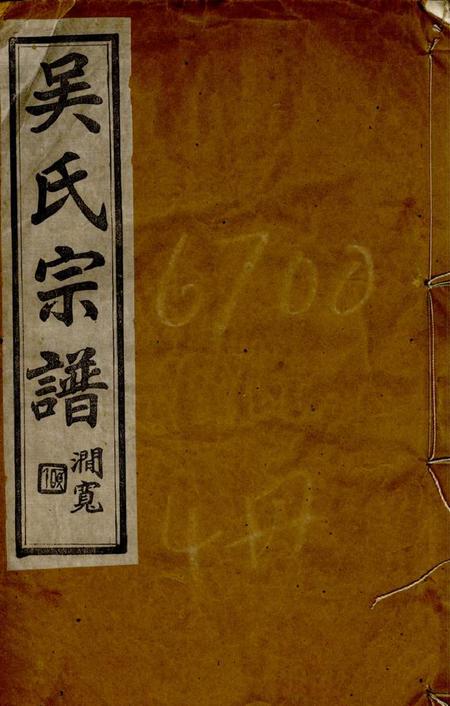 吴氏宗譜
澗寬
6700